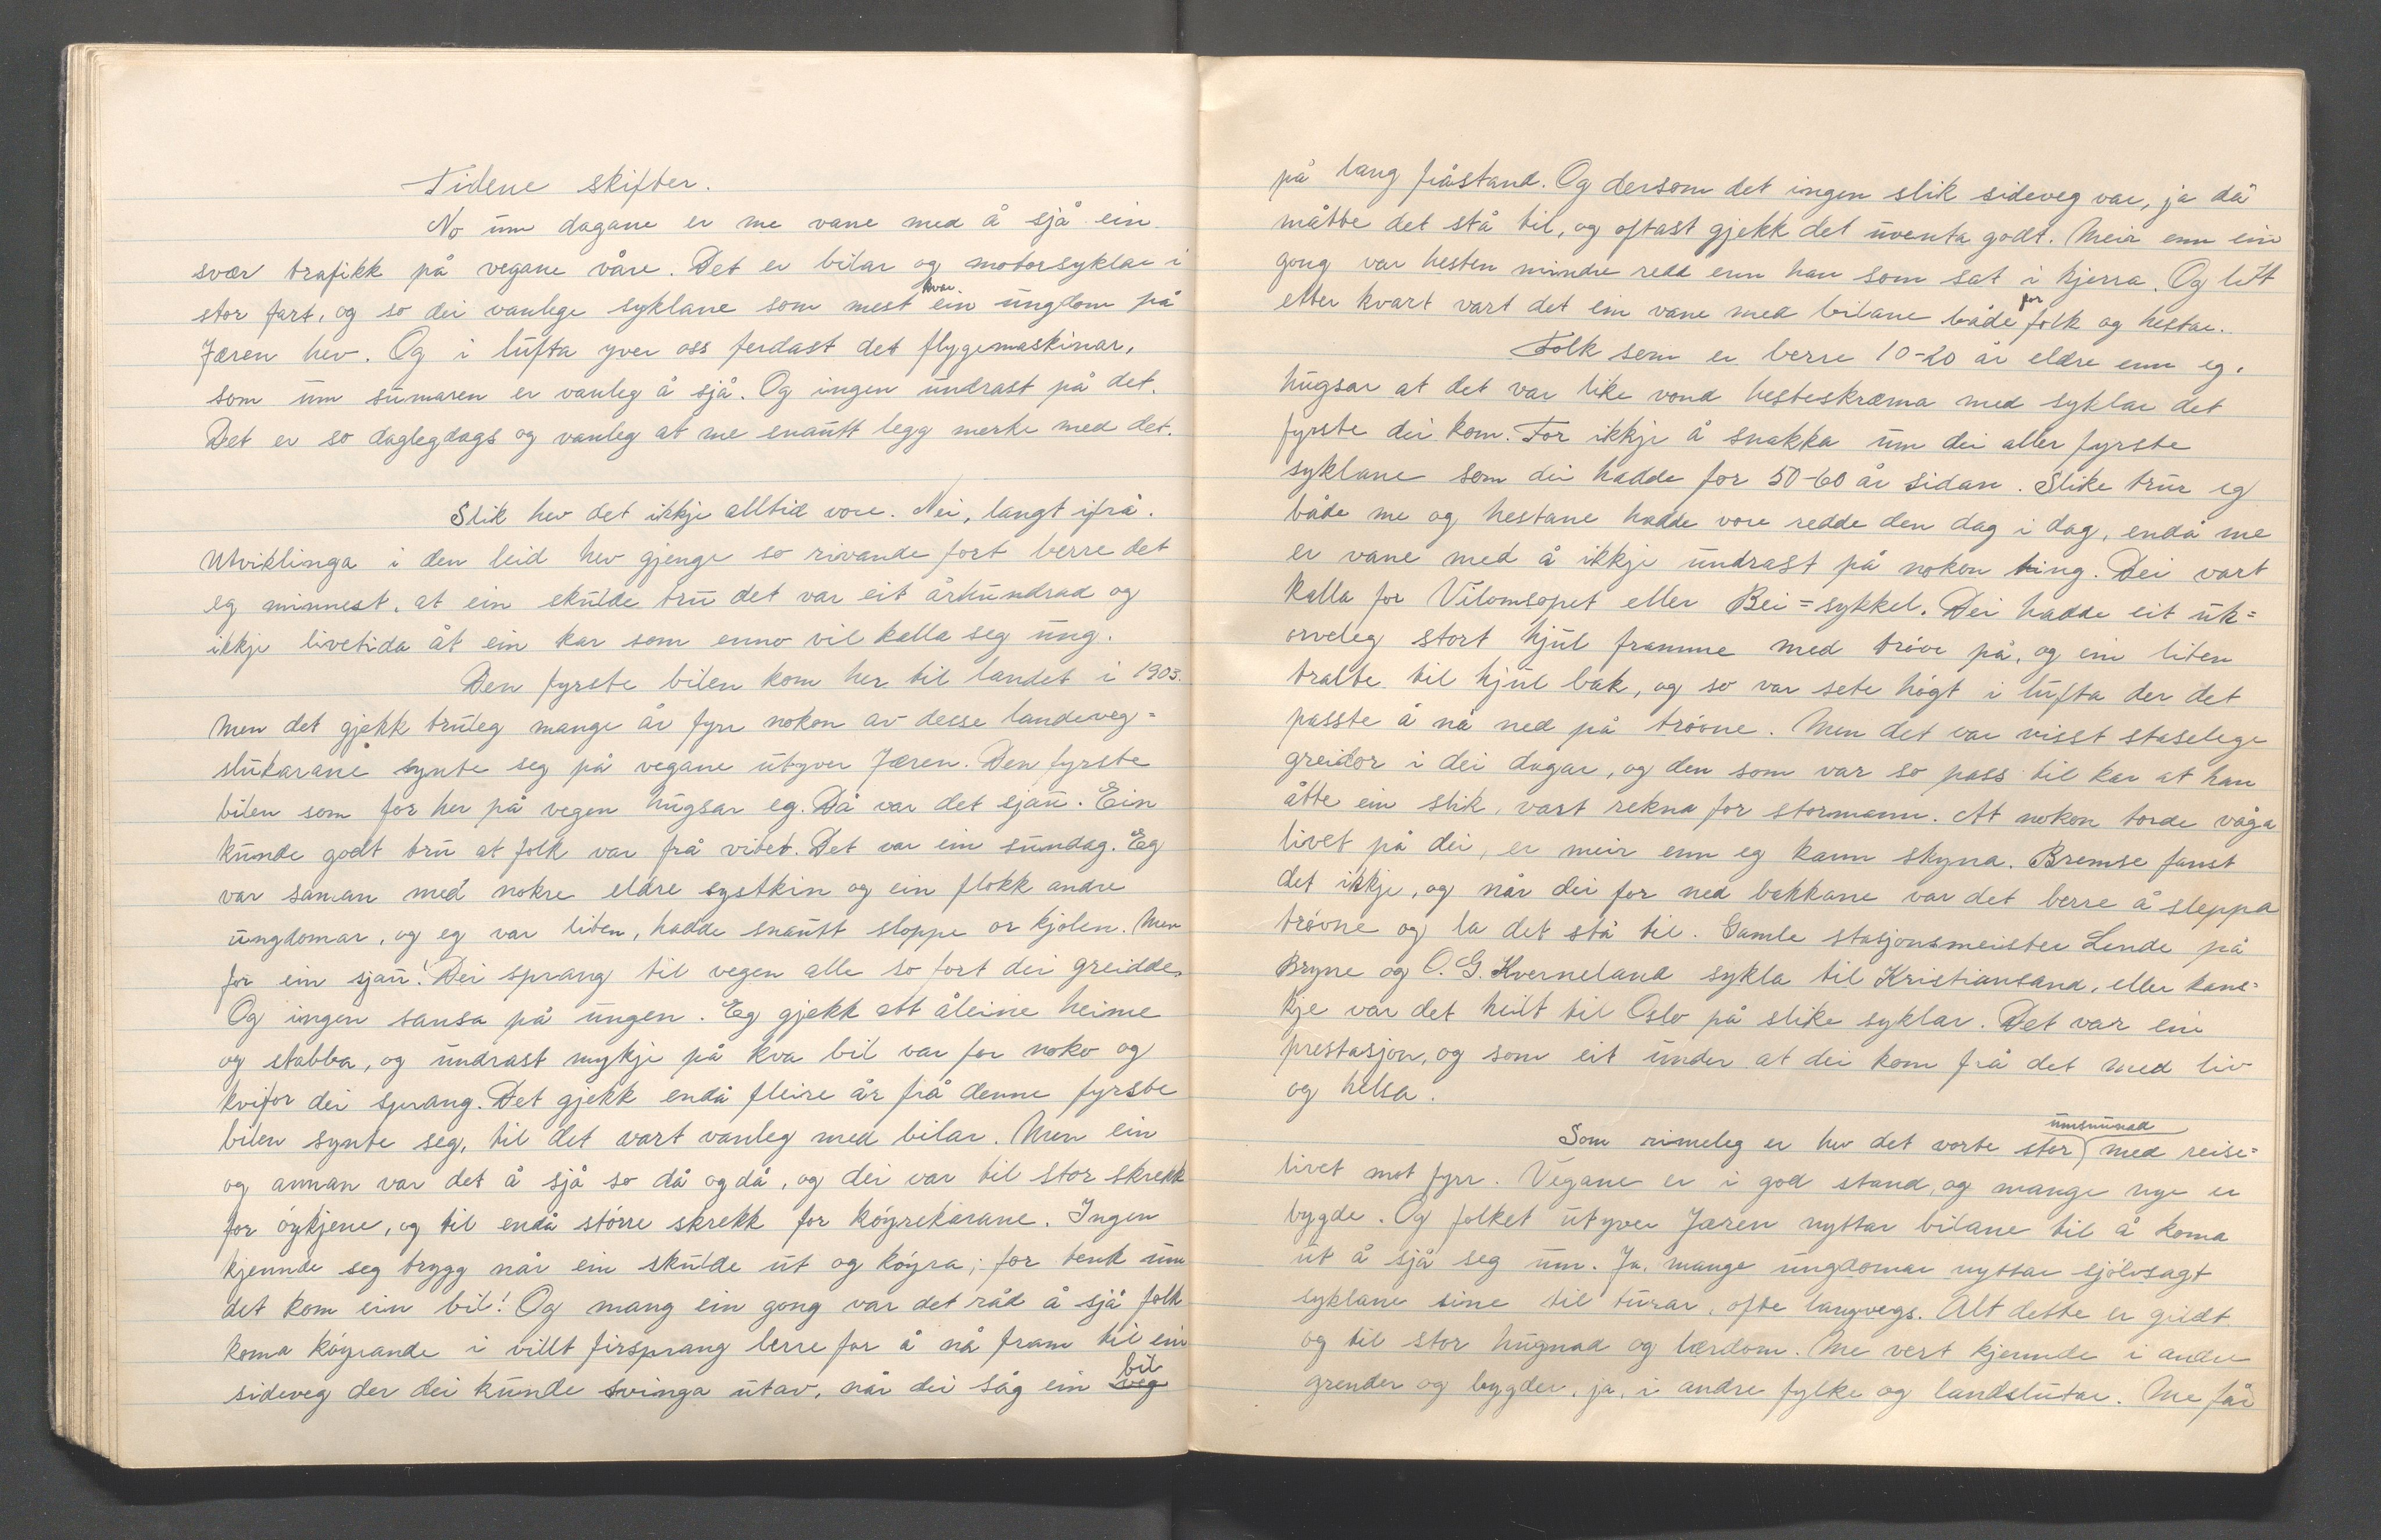 Tidene skifter.
No um dagane er me vane med å sjå ein
svær trafikk på vegane våre. Det er bilar og motorsyklar i
stor fart, og so dei vanlege syklane som mest kvar ein ungdom på
Jæren hev. Og i lufta yver oss ferdast det flygemaskinar,
som um sumaren er vanleg å sjå. Og ingen undrast på det.
Det er so daglegdags og vanleg at me snautt legg merke med det.
Slik hev det ikkje alltid vore. Nei, langt ifrå.
Utviklinga i den leid hev gjenge so rivande fort berre det
eg minnest, at ein skulde tru det var eit århundrad og
ikkje livetida åt ein kar som enno vil kalla seg ung.
Den fyrste bilen kom her til landet i 1903.
Men det gjekk truleg mange år fyrr nokon av desse landeveg=
slukarane synte seg på vegane utyver Jæren. Den fyrste
bilen som for her på vegen hugsar eg. Då var det sjau. Ein
kunde godt tru at folk var frå vitet. Det var ein sundag. Eg
var saman med nokre eldre systkin og ein flokk andre
ungdomar, og eg var liten, hadde snautt sloppe or kjolen. Men
for ein sjau! Dei sprang til vegen alle so fort dei greidde.
Og ingen sansa på ungen. Eg gjekk att åleine heime
og stabba, og undrast mykje på kva bil var for noko og
kvifor dei sprang. Det gjekk endå fleire år frå denne fyrste
bilen synte seg, til det vart vanleg med bilar. Men ein
og annan var det å sjå so då og då, og dei var til stor skrekk
for øykjene, og til endå større skrekk for køyrekarane. Ingen
kjennde seg trygg når ein skulde ut og køyra; for tenk um
det kom ein bil! Og mang ein gong var det råd å sjå folk
koma køyrande i villt firsprang berre for å nå fram til ein
sideveg der dei kunde svinga utav, når dei såg ein veg bil
på lang fråstand. Og dersom det ingen slik sideveg var, ja då
måtte det stå til, og oftast gjekk det uventa godt. Meir enn ein
gong var hesten mindre redd enn han som sat i kjerra. Og litt
etter kvart vart det ein vane med bilane både for folk og hestar.
Folk som er berre 10-20 år eldre enn eg,
hugsar at det var like vond hesteskræma med syklar det
fyrste dei kom. For ikkje å snakka um dei aller fyrste
syklane som dei hadde for 50-60 år sidan. Slike trur eg
både me og hestane hadde vore redde den dag i dag, endå me
er vane med å ikkje undrast på nokon ting. Dei vart
kalla for Vilomsopet eller Bei=sykkel. Dei hadde eit uk=
orveleg stort hjul framme med trøve på, og ein liten
tralte til hjul bak, og so var sete høgt i lufta der det
passte å nå ned på trøvne. Men det var visst staselege
greidor i dei dagar, og den som var so pass til kar at han
åtte ein slik, vart rekna for stormann. At nokon torde våga
livet på dei, er meir enn eg kann skyna. Bremse fanst
det ikkje, og når dei for ned bakkane var det berre å sleppa
trøvne og la det stå til. Gamle stasjonsmeister Lende på
Bryne og O. G. Kverneland sykla til Kristiansand, eller kans=
kje var det heilt til Oslo på slike syklar. Det var ein
prestasjon, og som eit under at dei kom frå det med liv
og helsa.
Som rimeleg er hev det vorte stor umsunnad med reise=
livet mot fyrr. Vegane er i god stand, og mange nye er
bygde. Og folket utyver Jæren nyttar bilane til å koma
ut å sjå seg um. Ja, mange ungdomar nyttar sjølvsagt
syklane sine til turar, ofte langvegs. Alt dette er gildt
og til stor hugnad og lærdom. Me vert kjennde i andre
grender og bygder, ja, i andre fylke og landslutar. Me får